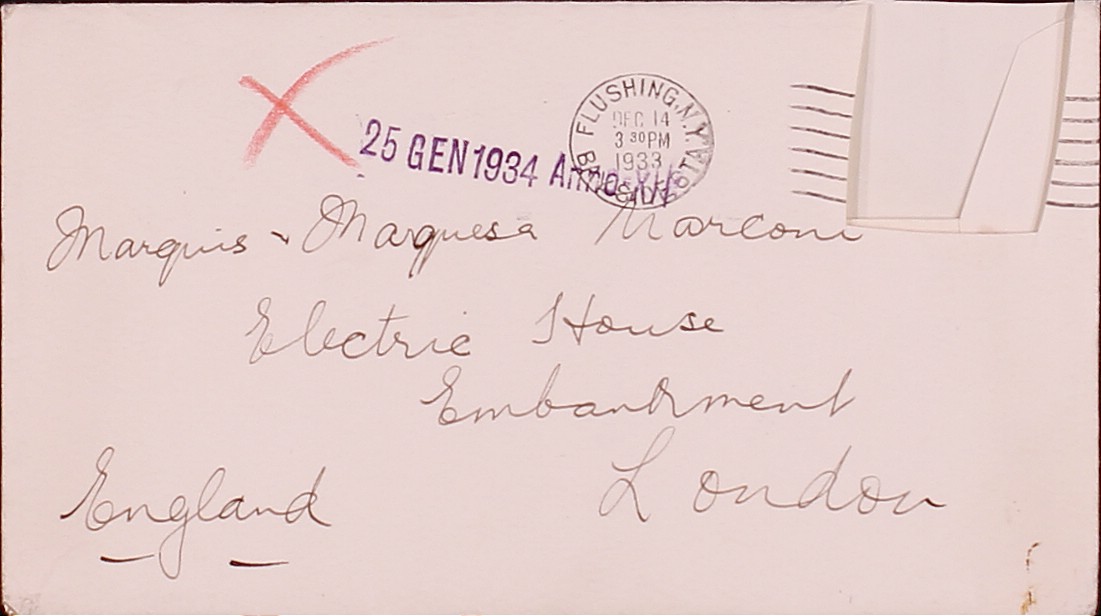 FLUSHING, N.Y.
DEC 14
3 30 PM
1933
STA.
25 GEN 1934 Anno XII
Marquis & Marquesa Marconi
Electric House
Embankment
London
England